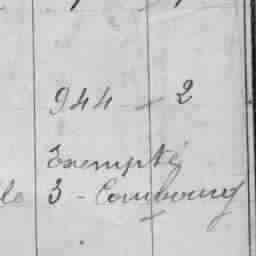 944 - 2
Exempté
le 3 - Combourg